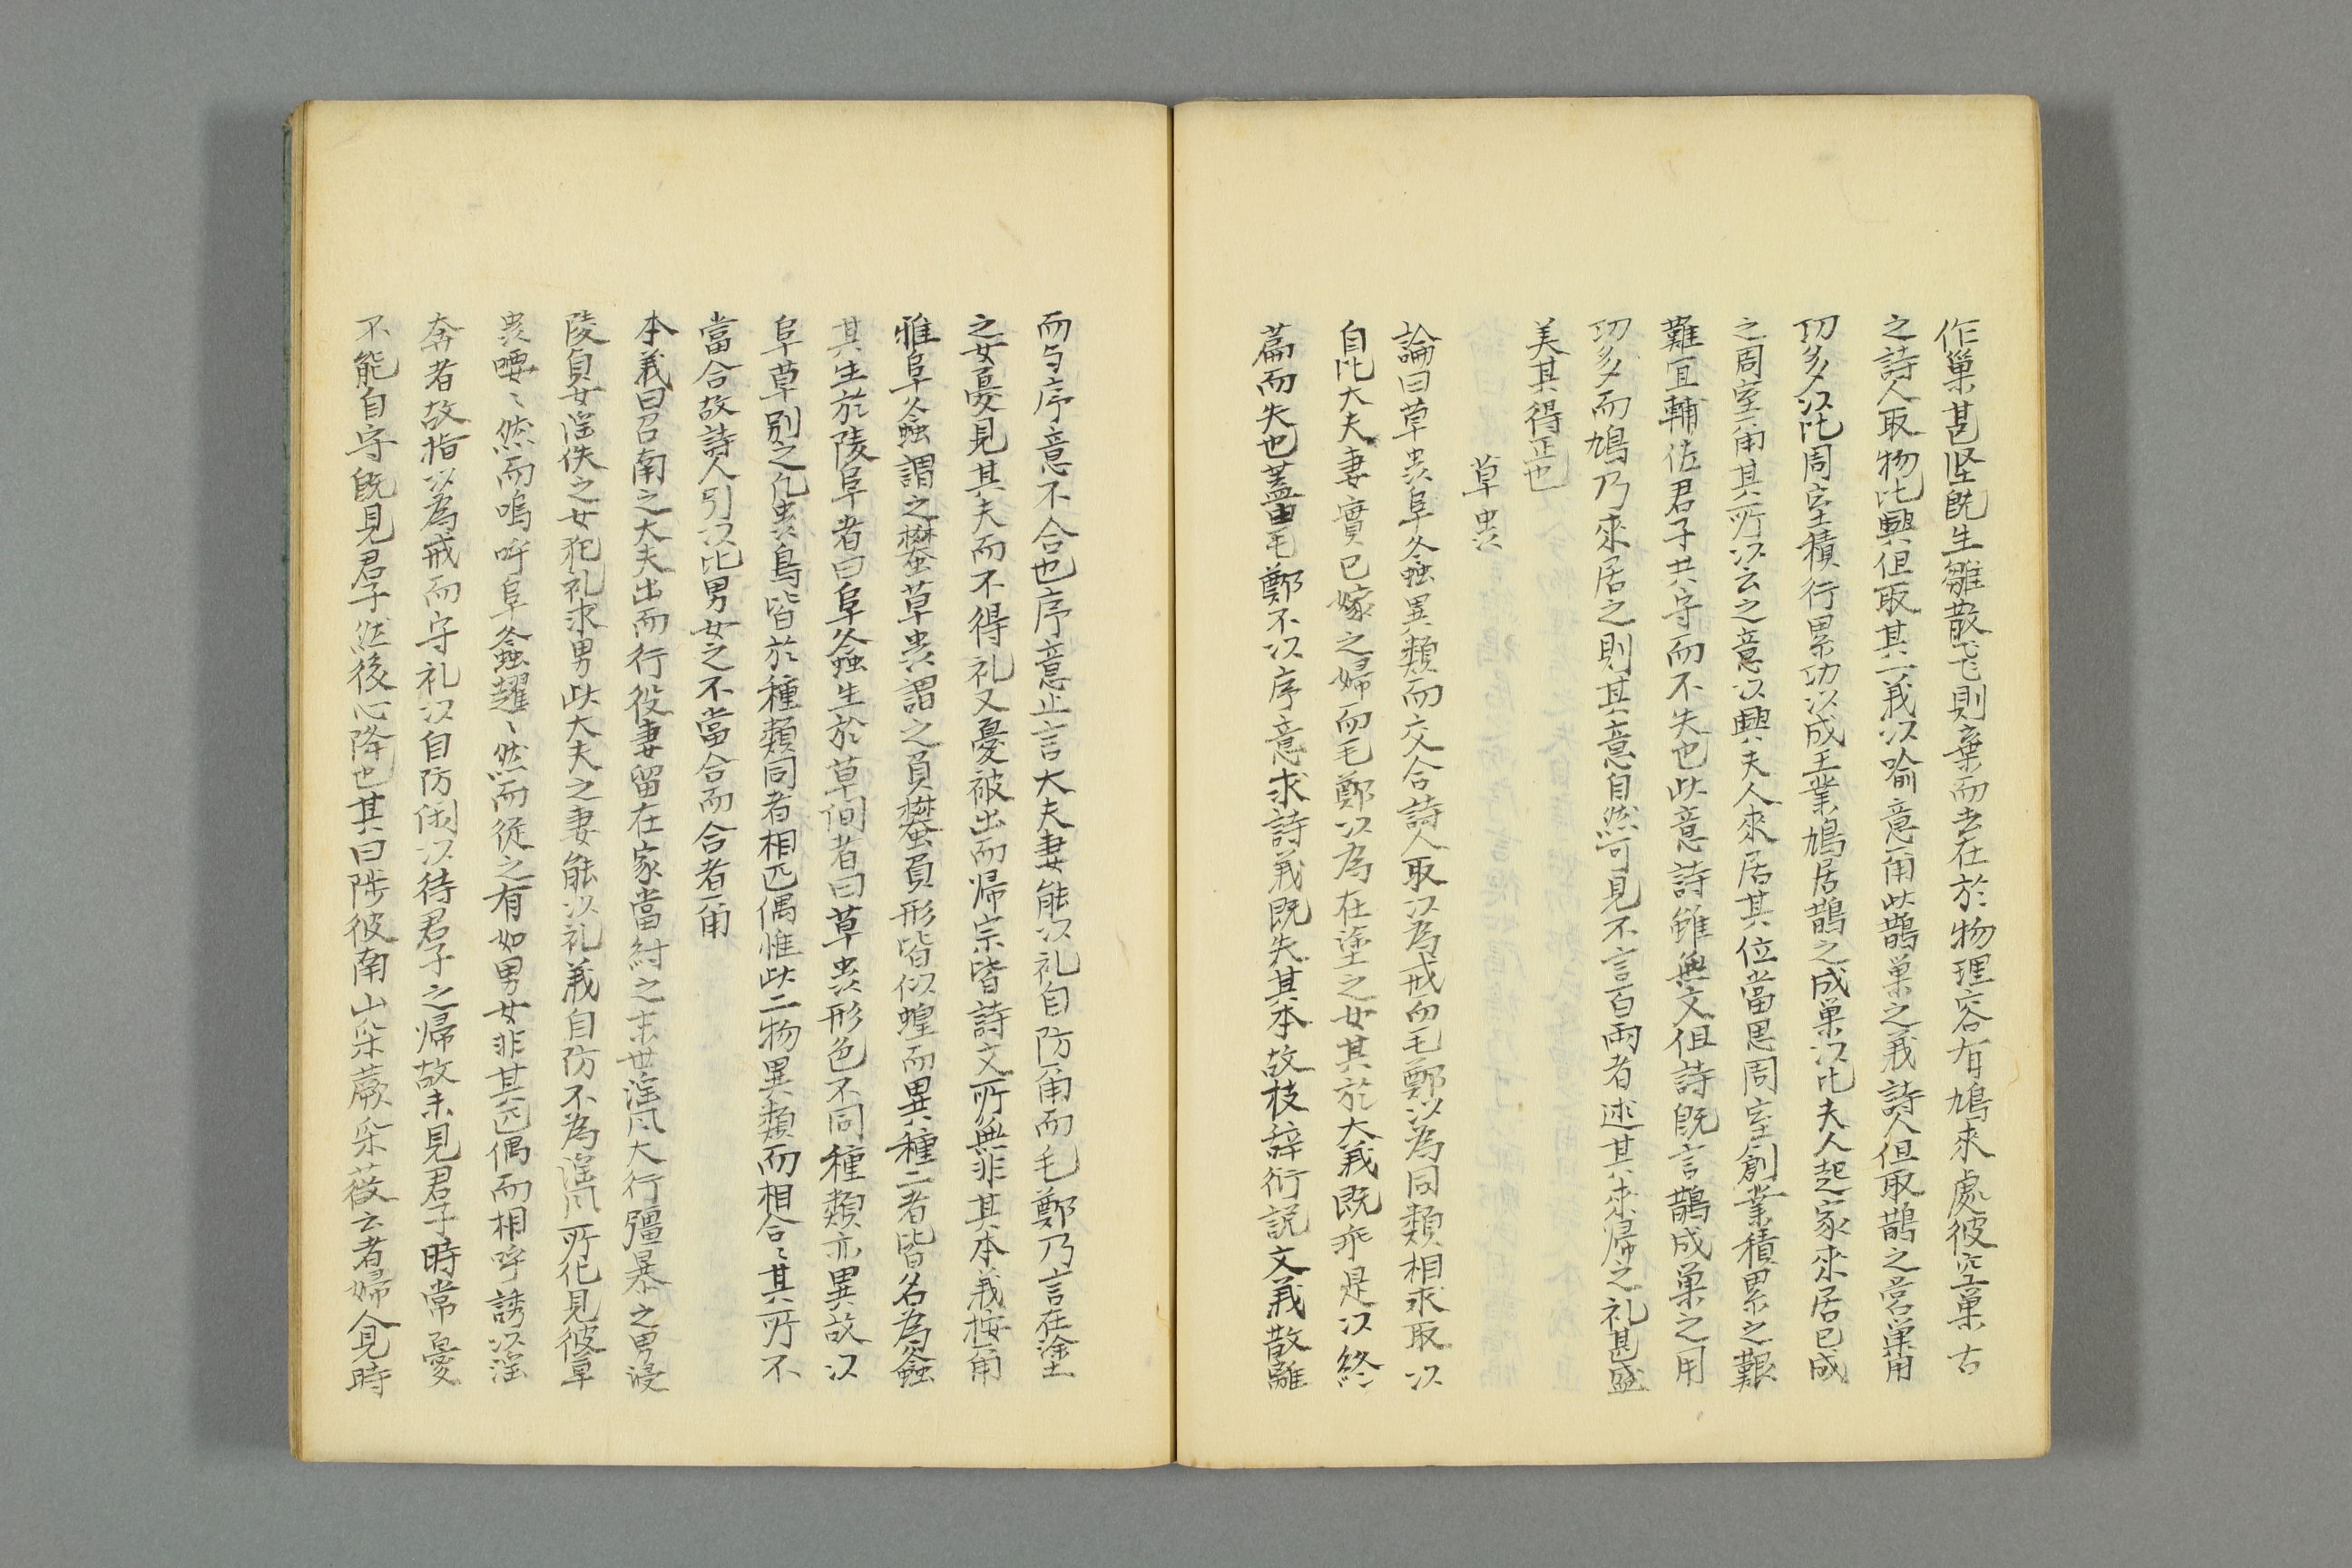 作巢甚堅既生雛散飛則棄而去在於物理容有鳩來處彼空巢古
之詩人取物比興但取其一義以喻意爾此鵲巢之義詩人但取鵲之營巢用
功多以比周室積行累功以成王業鳩居鵲之成巢以比夫人起家來居已成
之周室爾其所以云之意以興夫人來居其位當思周室創業積累之艱
難宜輔佐君子共守而不失也此意詩雖無文但詩既言鵲成巢之用
功多而鳩乃來居之則其意自然可見不言百兩者述其來帰之礼甚盛
美其得正也
草虫
論曰草虫阜螽異類而交合詩人取以為戒而毛鄭以為同類相求取以
自比大夫妻實已嫁之婦而毛鄭以為在塗之女其於大義既乖是以終
篇而失也蓋由毛鄭不以序意求詩義既失其本故枝辞衍説文義散離
而与序意不合也序意止言大夫妻能以礼自防爾而毛鄭乃言在塗
之女憂見其夫而不得礼又憂被出而帰宗皆詩文所無非其本義按爾
雅阜螽謂之蠜草虫謂之負蠜負形皆似蝗而異種二者皆名為螽
其生於陵阜者曰阜螽生於草間者曰草虫形色不同種類亦異故以
阜草別之凡虫鳥皆於種類同者相匹偶惟此二物異類而相合〻其所不
當合故詩人引以比男女之不當合而合者爾
本義曰召南之大夫出而行役妻留在家當紂之末世淫風大行彊暴之男侵
陵貞女淫佚之女犯礼求男此大夫之妻能以礼義自防不為淫風所化見彼草
虫喓〻然而鳴呼阜螽趯〻然而従之有如男女非其匹偶而相呼誘以淫
奔者故指以為戒而守礼以自防閑以待君子之帰故未見君子時常憂
不能自守既見君子然後心降也其曰陟彼南山采蕨采薇云者婦人見時